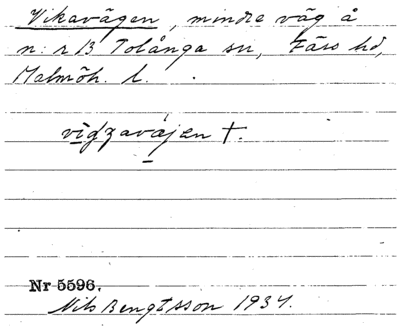 Vikavägen, mindre väg å
n:r 13 Tolånga sn, Färs hd,
Malmöh. l.
vidgavájen †.
Nr 5596.
Nils Bengtsson 1934.